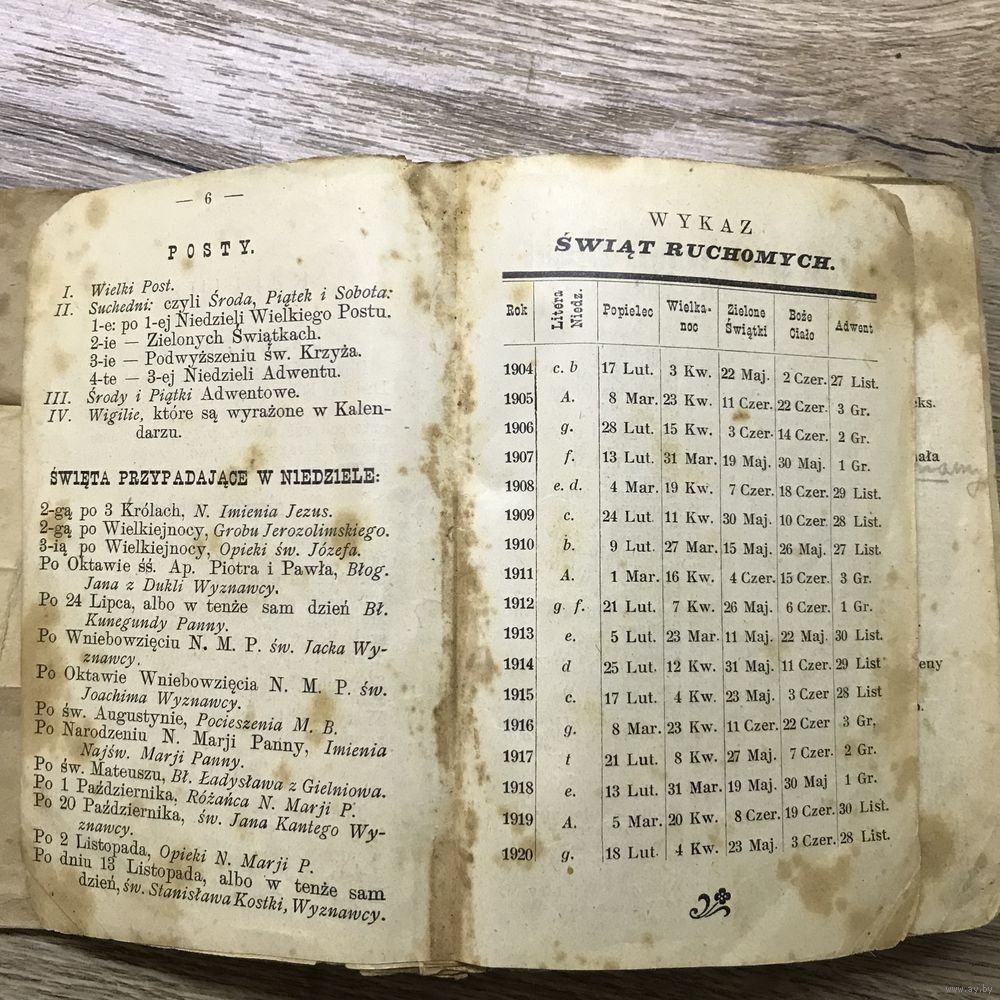 — 6 —
POSTY.
I. Wielki Post.
II. Suchedni: czyli Środa, Piątek i Sobota:
1-e: po 1-ej Niedzieli Wielkiego Postu.
2-ie — Zielonych Świątkach.
3-ie — Podwyższeniu św. Krzyża.
4-te — 3-ej Niedzieli Adwentu.
III. Środy i Piątki Adwentowe.
IV. Wigilie, które są wyrażone w Kalen-
darzu.
ŚWIĘTA PRZYPADAJĄCE W NIEDZIELE:
2-gą po 3 Królach, N. Imienia Jezus.
2-gą po Wielkiejnocy, Grobu Jerozolimskiego.
3-ią po Wielkiejnocy, Opieki św. Józefa.
Po Oktawie śś. Ap. Piotra i Pawła, Błog.
Jana z Dukli Wyznawcy.
Po 24 Lipca, albo w tenże sam dzień Bł.
Kunegundy Panny.
Po Wniebowzięciu N. M. P. św. Jacka Wy-
znawcy.
Po Oktawie Wniebowzięcia N. M. P. św.
Joachima Wyznawcy.
Po św. Augustynie, Pocieszenia M. B.
Po Narodzeniu N. Marji Panny, Imienia
Najśw. Marji Panny.
Po św. Mateuszu, Bł. Ładysława z Gielniowa.
Po 1 Października, Różańca N. Marji P.
Po 20 Października, św. Jana Kantego Wy-
znawcy.
Po 2 Listopada, Opieki N. Marji P.
Po dniu 13 Listopada, albo w tenże sam
dzień, św. Stanisława Kostki, Wyznawcy.
WYKAZ
ŚWIĄT RUCHOMYCH.
Rok Litera Niedz. Popielec Wielka-noc Zielone Świątki Boże Ciało Adwent
1904 c. b 17 Lut. 3 Kw. 22 Maj. 2 Czer. 27 List.
1905 A. 8 Mar. 23 Kw. 11 Czer. 22 Czer. 3 Gr.
1906 g. 28 Lut. 15 Kw. 3 Czer. 14 Czer. 2 Gr.
1907 f. 13 Lut. 31 Mar. 19 Maj. 30 Maj. 1 Gr.
1908 e. d. 4 Mar. 19 Kw. 7 Czer. 18 Czer. 29 List.
1909 c. 24 Lut. 11 Kw. 30 Maj. 10 Czer. 28 List.
1910 b. 9 Lut. 27 Mar. 15 Maj. 26 Maj. 27 List.
1911 A. 1 Mar. 16 Kw. 4 Czer. 15 Czer. 3 Gr.
1912 g. f. 21 Lut. 7 Kw. 26 Maj. 6 Czer. 1 Gr.
1913 e, 5 Lut. 23 Mar. 11 Maj. 22 Maj. 30 List.
1914 d 25 Lut. 12 Kw. 31 Maj. 11 Czer. 29 List
1915 c. 17 Lut. 4 Kw. 23 Maj. 3 Czer 28 List
1916 g. 8 Mar. 23 Kw. 11 Czer. 22 Czer 3 Gr,
1917 t 21 Lut. 8 Kw. 27 Maj. 7 Czer. 2 Gr.
1918 e. 13 Lut. 31 Mar. 19 Maj. 30 Maj 1 Gr.
1919 A. 5 Mar. 20 Kw. 8 Czer. 19 Czer. 30 List.
1920 g. 18 Lut. 4 Kw. 23 Maj. 3 Czer. 28 List.
www.ay.by